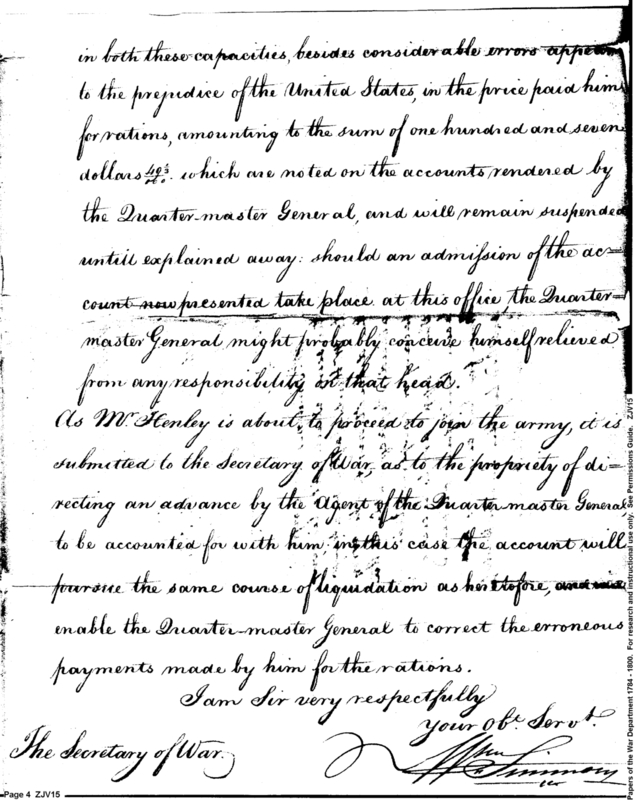 in both these capacities, besides considerable errors appear
to the prejudice of the United States, in the price paid him
for rations, amounting to the sum of one hundred and seven
dollars which are noted on the accounts rendered by
the Quarter-master General, and will remain suspended
untill explained away: should an admission of the ac=
count now presented take place at this office the Quarter=
master General might probably conceive himself relieved
from any responsibility on that head.
As Mr. Henley is about to proceed to join the army, it is
submitted to the Secretary of War, as to the propriety of di=
recting an advance by the Agent of the Quarter-master General,
to be accounted for with him in this case the account will
pursue the same course of liquidation as heretofore, and
enable the Quarter-master General to correct the erroneous
payments made by him for the rations.
I am Sir very respectfully
your Obt. Servt.
The Secretary of War.
Simmons
Page 4 ZJV15
Papers of the War Department 1784 - 1800. For research and instructional use only. See Permissions Guide. ZJV15